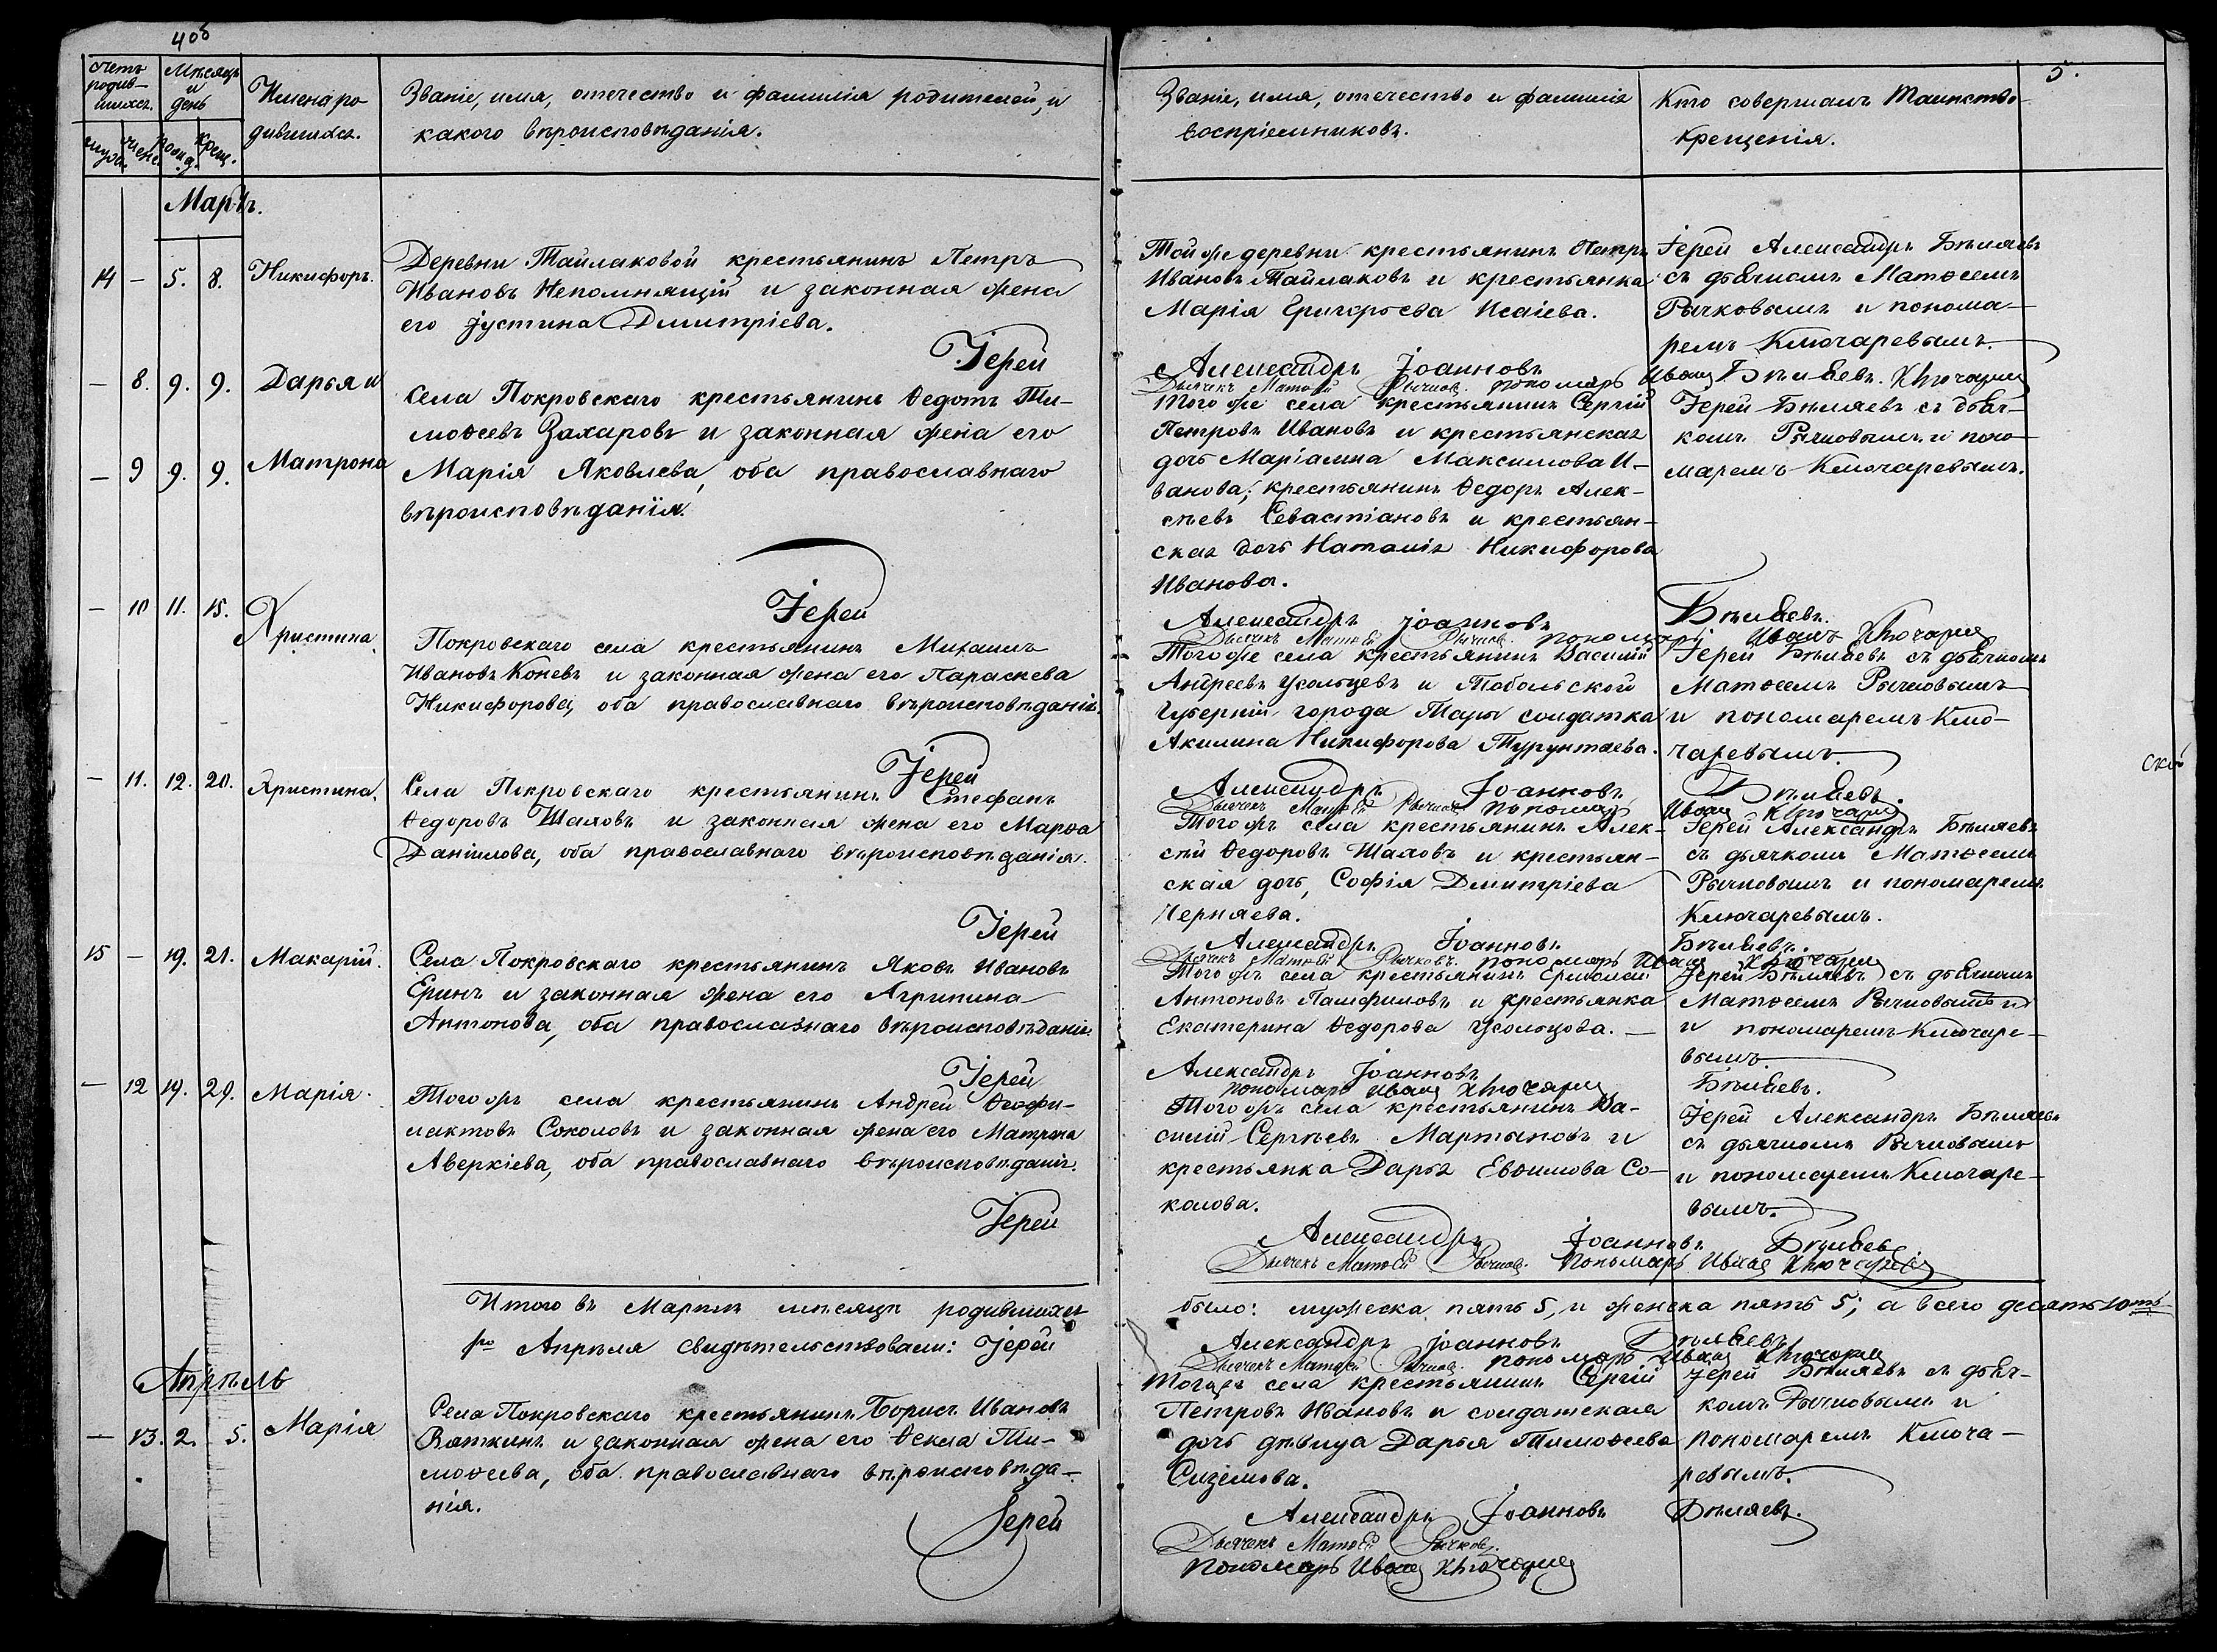 408
5.
Счетъ родив-шихся.
Мѣсяцъ и день
Имена ро-
дившихся.
Званіе, имя, отечество и фамилія родителей, и
какого вѣроисповѣданія.
Званіе, имя, отечество и фамилія
воспріемниковъ.
Кто совершалъ таинство
крещенія.
муж. жен. рожд. крещ.
Мартъ.
14 — 5. 8. Никифоръ.
Деревни Тайлаковой крестьянинъ Петръ
Ивановъ Непомнящій и законная жена
его Іустина Дмитріева.
Іерей
Той же деревни крестьянинъ Петръ
Ивановъ Тайлаковъ и крестьянка
Марія Григорьева Исаіева.
Іерей Александръ Бѣляевъ
съ дьячкомъ Матѳеемъ
Рычковымъ и понома-
ремъ Ключаревымъ.
Александръ Іоанновъ Бѣляевъ.
Дьячекъ Матѳей Рычковъ. пономарь Иванъ Ключаревъ
— 8. 9. 9. Дарья и
— 9 9. 9. Матрона
Села Покровскаго крестьянинъ Ѳедотъ Ти-
моѳеевъ Захаровъ и законная жена его
Марія Яковлева, оба православнаго
вѣроисповѣданія.
Іерей
Того же села крестьянинъ Сергій
Петровъ Ивановъ и крестьянская
дочь Маріамна Максимова И-
ванова; крестьянинъ Ѳедоръ Алек-
сѣевъ Севастіановъ и крестьян-
ская дочь Наталія Никифорова
Иванова.
Іерей Бѣляевъ съ дьяч-
комъ Рычковымъ и поно-
маремъ Ключаревымъ.
Александръ Іоанновъ Бѣляевъ.
Дьячекъ Матѳей Рычковъ. пономарь Иванъ Ключаревъ
— 10 11. 15. Христина.
Покровскаго села крестьянинъ Михаилъ
Ивановъ Коневъ и законная жена его Параскева
Никифорова, оба православнаго вѣроисповѣданія.
Іерей
Того же села крестьянинъ Василій
Андреевъ Усольцевъ и Тобольской
Губерніи города Тары солдатка
Акилина Никифорова Турунтаева.
Іерей Бѣляевъ съ дьячкомъ
Матѳеемъ Рычковымъ
и пономаремъ Клю-
чаревымъ.
Александръ Іоанновъ Бѣляевъ.
Дьячекъ Матѳей Рычковъ пономарь Иванъ Ключаревъ
— 11. 12. 20. Христина.
Села Покровскаго крестьянинъ Стефанъ
Ѳедоровъ Шаловъ и законная жена его Марѳа
Даніилова, оба православнаго вѣроисповѣданія.
Іерей
Того жъ села крестьянинъ Алек-
сѣй Ѳедоровъ Шаловъ и крестьян-
ская дочь, Софія Дмитріева
Черняева.
Іерей Александръ Бѣляевъ
съ дьячкомъ Матѳеемъ
Рычковымъ и пономаремъ
Ключаревымъ.
Александръ Іоанновъ Бѣляевъ.
Дьячекъ Матѳей Рычковъ. пономарь Иванъ Ключаревъ
15 — 19. 21. Макарій.
Села Покровскаго крестьянинъ Яковъ Ивановъ
Еринъ и законная жена его Агрипина
Антонова, оба православнаго вѣроисповѣданія.
Іерей
Того жъ села крестьянинъ Ермолай
Антоновъ Памфиловъ и крестьянка
Екатерина Ѳедорова Усольцова. —
Іерей Бѣляевъ съ дьячкомъ
Матѳеемъ Рычковымъ и
и пономаремъ Ключаре-
вымъ.
Александръ Іоанновъ Бѣляевъ.
пономарь Иванъ Ключаревъ
— 12 19. 29. Марія.
Того жъ села крестьянинъ Андрей Ѳеофи-
лактовъ Соколовъ и законная жена его Матрона
Аверкіева, оба православнаго вѣроисповѣданія.
Іерей
Того жъ села крестьянинъ Ва-
силій Сергѣевъ Мартыновъ и
крестьянка Дарья Евѳимова Со-
колова.
Іерей Александръ Бѣляевъ
съ дьячкомъ Рычковымъ
и пономаремъ Ключаре-
вымъ.
Александръ Іоанновъ Бѣляевъ
Дьячекъ Матѳей Рычковъ. Пономарь Иванъ Ключаревъ
Итого въ Мартѣ мѣсяцѣ родившихся
было: мужеска пять 5, и женска пять 5; а всего десять 10ть
Апрѣля свидѣтельствовали: Іерей
Александръ Іоанновъ Бѣляевъ
Дьячекъ Матѳей Рычковъ. пономарь Иванъ Ключаревъ
Апрѣль
— 13. 2. 5. Марія
Села Покровскаго крестьянинъ Борисъ Ивановъ
Вяткинъ и законная жена его Ѳекла Ти-
моѳеева, оба православнаго вѣроисповѣда-
нія.
Іерей
Тогожъ села крестьянинъ Сергій
Петровъ Ивановъ и солдатская
дочь дѣвица Дарья Тимоѳеева
Сиземова.
Іерей Бѣляевъ съ дьяч-
комъ Рычковымъ и
пономаремъ Ключа-
ревымъ.
Александръ Іоанновъ Бѣляевъ.
Дьячекъ Матѳей Рычковъ.
Пономарь Иванъ Ключаревъ